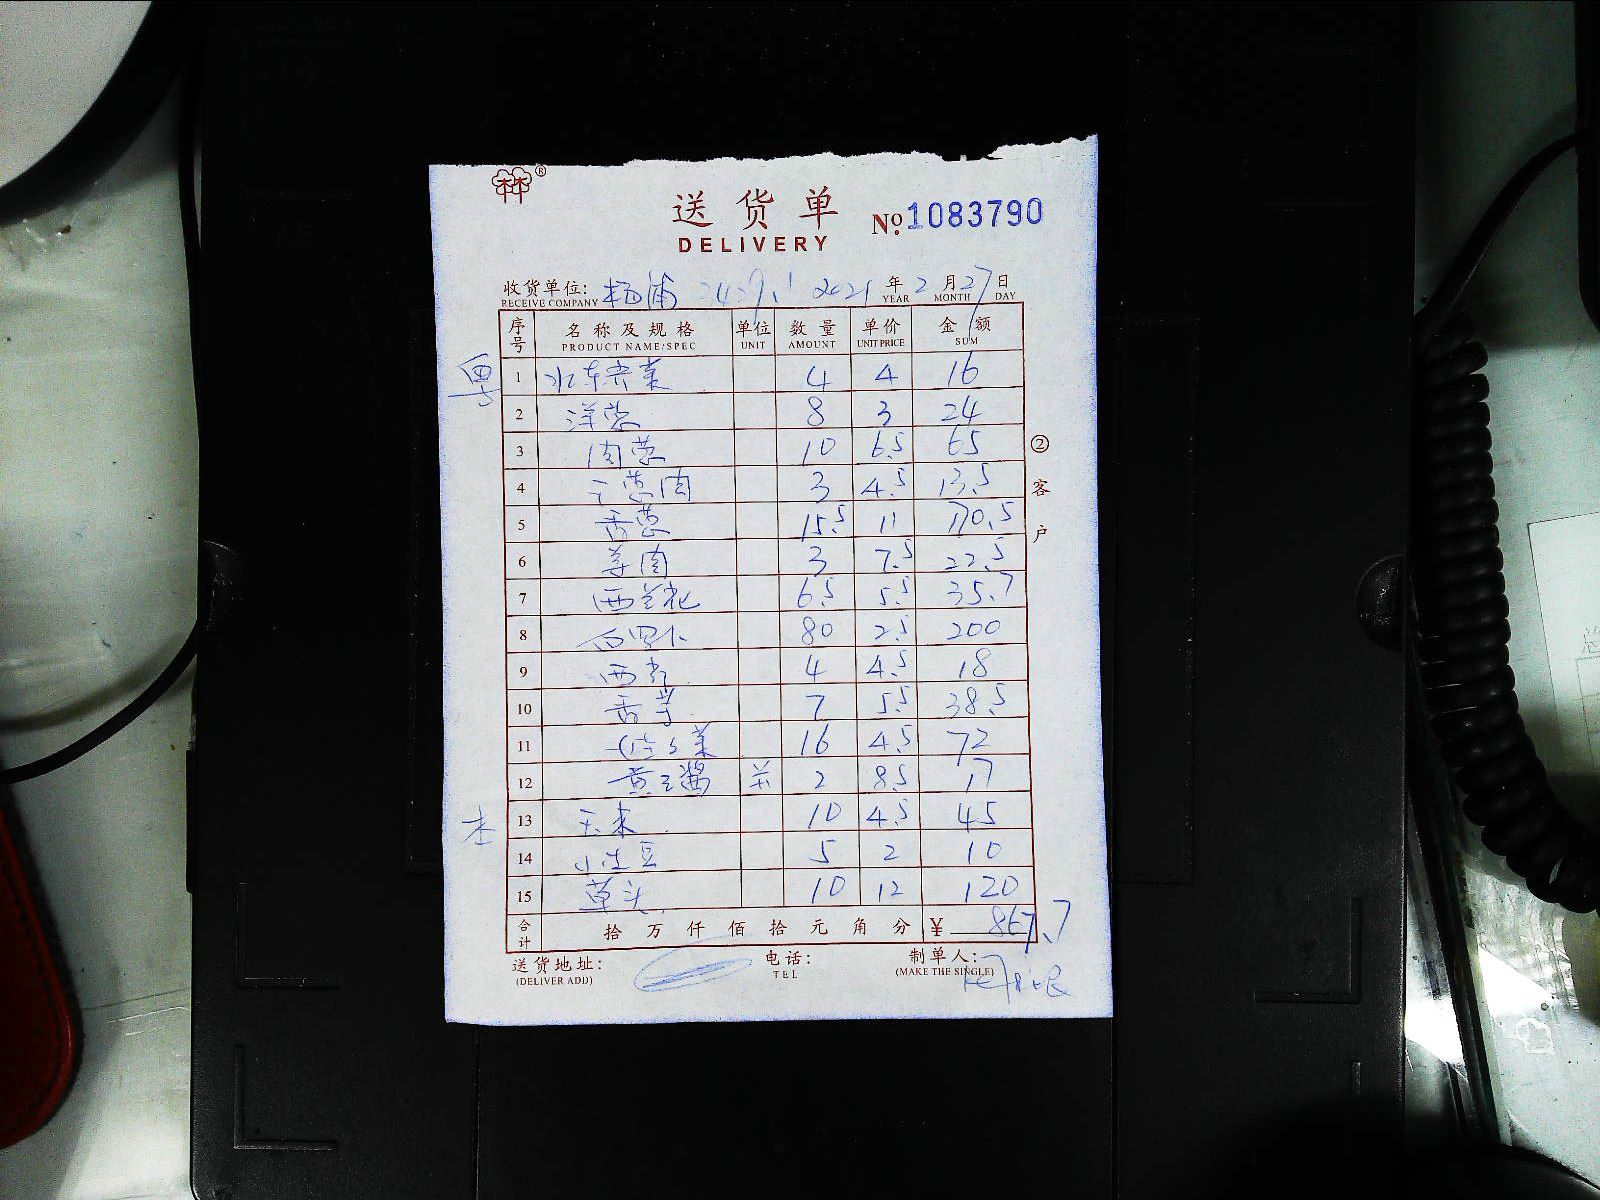 林®
送货单 №1083790
DELIVERY
收货单位: 杨浦 2021 年 2 月 27 日
RECEIVE COMPANY YEAR MONTH DAY
序号 名称及规格 单位 数量 单价 金额
PRODUCT NAME/SPEC UNIT AMOUNT UNIT PRICE SUM
粤 1 水东芥菜 4 4 16
2 洋葱 8 3 24
3 肉葱 10 6.5 65
4 干葱肉 3 4.5 13.5
5 香葱 15.5 11 170.5
6 羊肉 3 7.5 22.5
7 西兰花 6.5 5.5 35.7
8 白罗卜 80 2.5 200
9 西芹 4 4.5 18
10 香芋 7 5.5 38.5
11 菜 16 4.5 72
12 黄豆酱 2 8.5 17
本 13 玉米 10 4.5 45
14 小土豆 5 2 10
15 草头 10 12 120
合计 拾 万 仟 佰 拾 元 角 分 ¥ 867.7
送货地址: 电话: 制单人:
(DELIVER ADD) TEL (MAKE THE SINGLE)
②客户